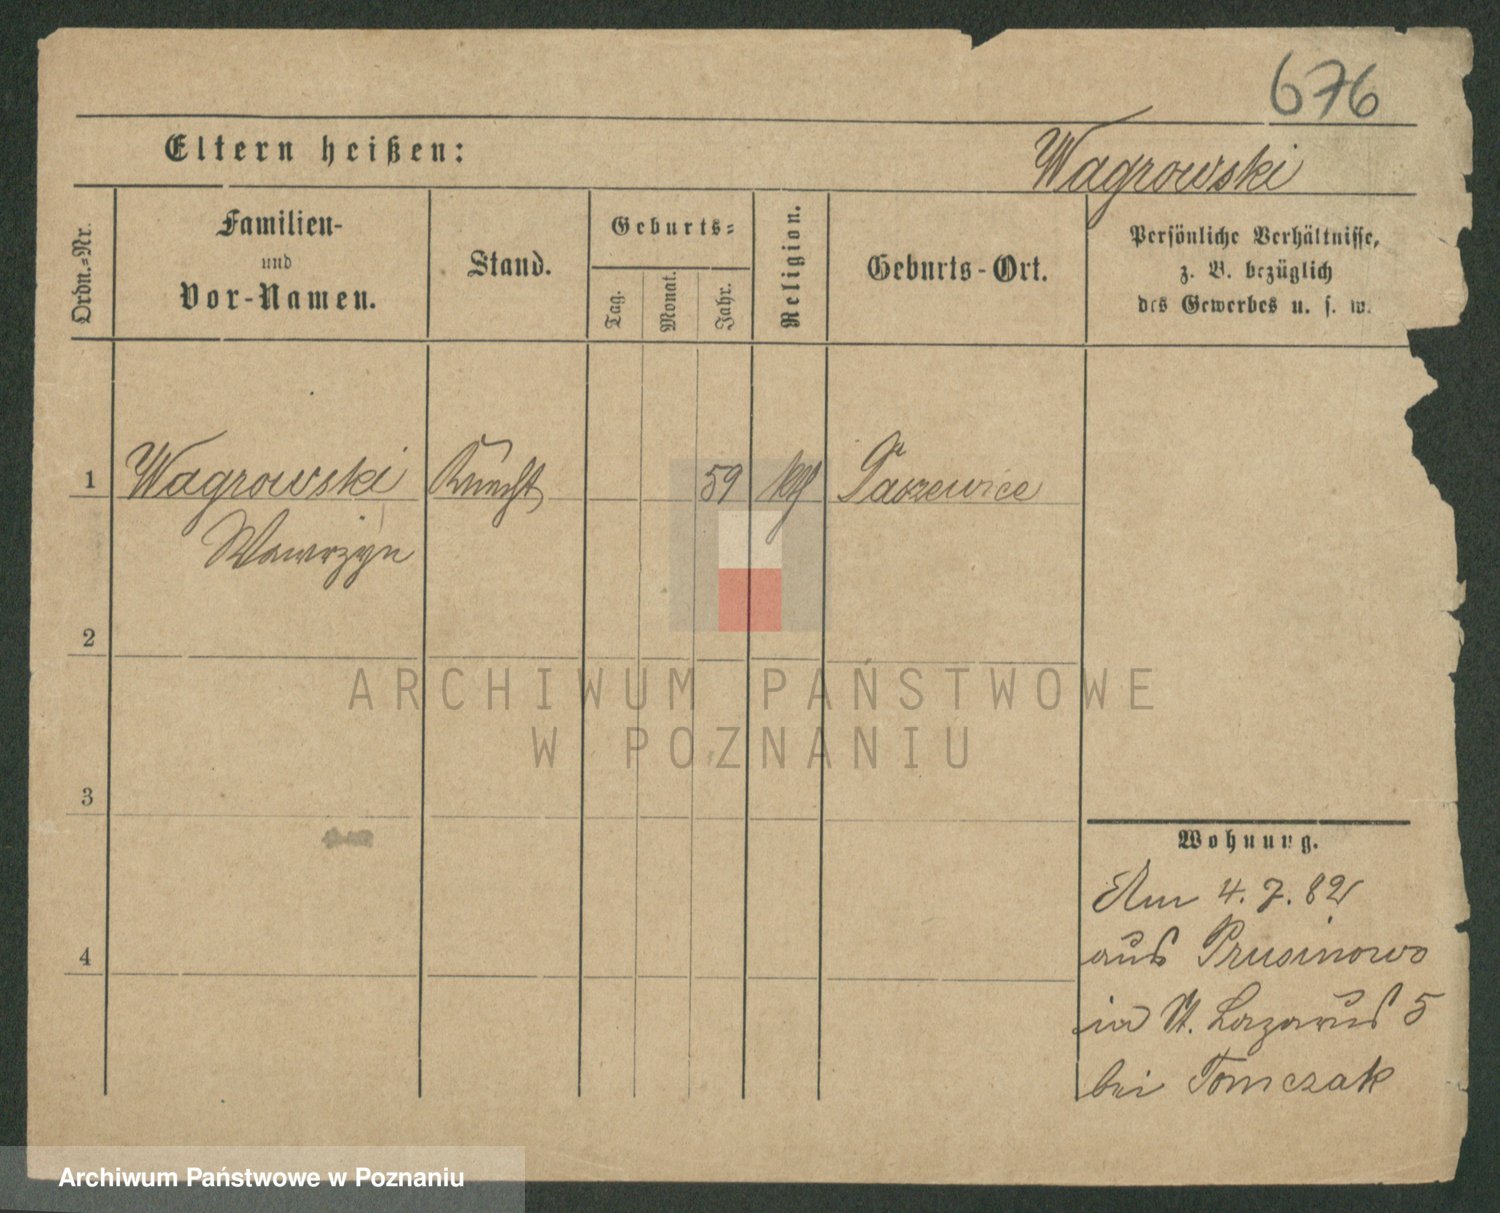 676
Eltern heißen:
Wagrowski
Ordn.-Nr.
Familien-
und
Vor-Namen.
Stand.
Geburts-
Tag.
Monat.
Jahr.
Religion.
Geburts-Ort.
Persönliche Verhältnisse,
z. B. bezüglich
des Gewerbes u. s. w.
1 Wagrowski Knecht 59 kth
Wawrzyn
2
ARCHIWUM PAŃSTWOWE
W POZNANIU
3
Wohnung.
Am 4.7.82
4
aus Prusinowo
in St. Lazarus 5
bei Tomczak
Archiwum Państwowe w Poznaniu